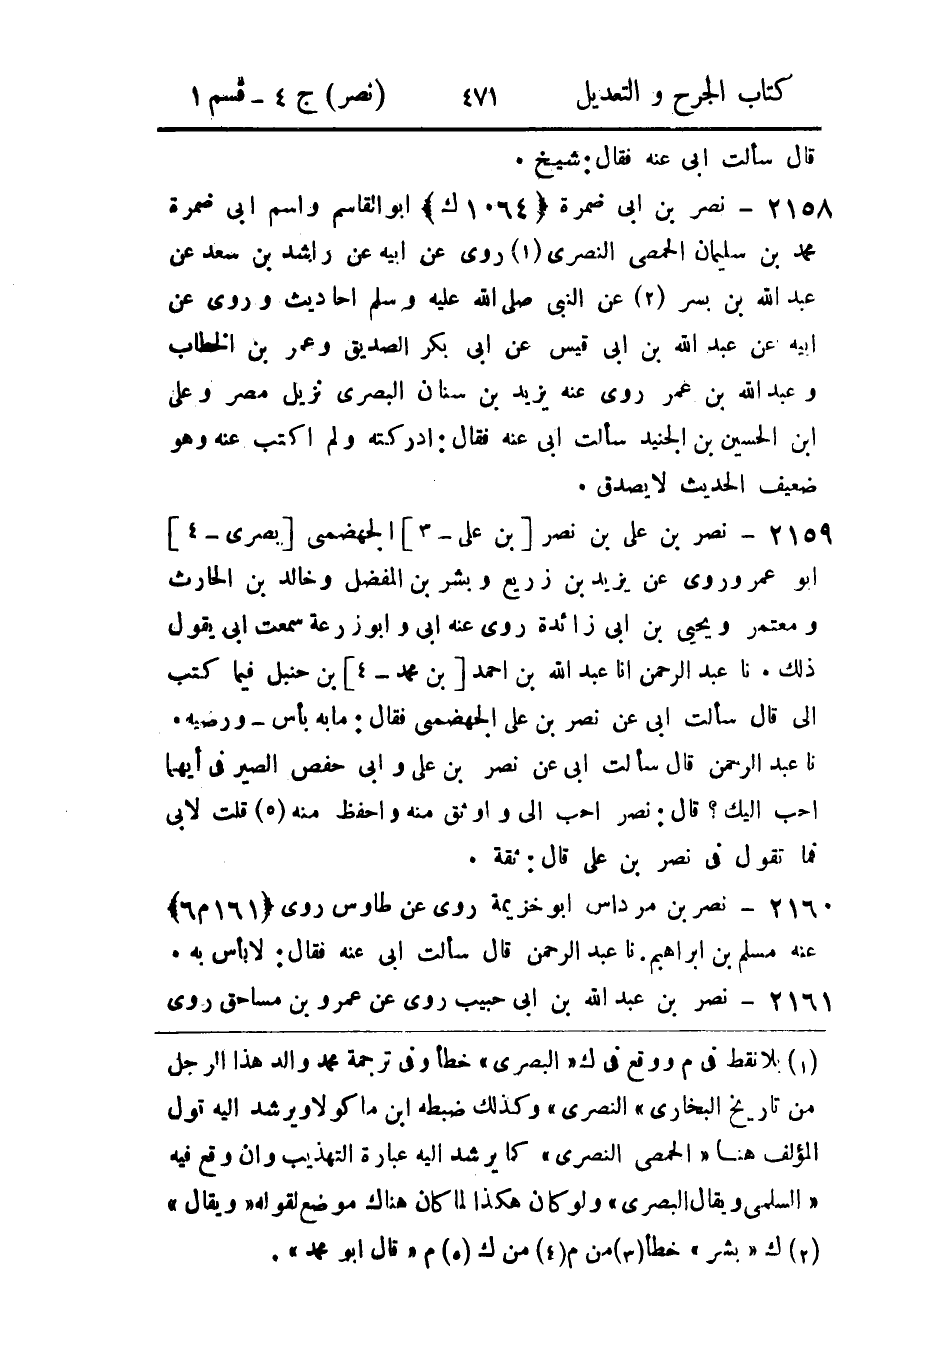 كتاب الجرح و التعديل ٤٧١ (نصر) ج ٤ ـ قسم ١
قال سألت ابى عنه فقال: شيخ ٠
٢١٥٨ - نصر بن ابى ضمرة ﴿١٠٦٤ ك﴾ ابو القاسم واسم ابى ضمرة
محمد بن سليمان الحمصى النصرى (١) روى عن ابيه عن راشد بن سعد عن
عبد الله بن بسر (٢) عن النبى صلى الله عليه وسلم احاديث وروى عن
ابيه عن عبد الله بن ابى قيس عن ابى بكر الصديق وعمر بن الخطاب
وعبد الله بن عمر روى عنه يزيد بن سنان البصرى نزيل مصر وعلى
ابن الحسين بن الجنيد سألت ابى عنه فقال: ادركته ولم اكتب عنه وهو
ضعيف الحديث لا يصدق ٠
٢١٥٩ - نصر بن على بن نصر [بن على - ٣] الجهضمى [بصرى - ٤]
ابو عمرو روى عن يزيد بن زريع وبشر بن المفضل وخالد بن الحارث
ومعتمر ويحيى بن ابى زائدة روى عنه ابى وابو زرعة سمعت ابى يقول
ذلك ٠ نا عبد الرحمن انا عبد الله بن احمد [بن محمد - ٤] بن حنبل فيما كتب
الى قال سألت ابى عن نصر بن على الجهضمى فقال: ما به بأس - ورضيه ٠
نا عبد الرحمن قال سألت ابى عن نصر بن على وابى حفص الصيرفى أيهما
احب اليك؟ قال: نصر احب الى واوثق منه واحفظ منه (٥) قلت لابى
فما تقول فى نصر بن على قال: ثقة ٠
٢١٦٠ - نصر بن مرداس ابو خزيمة روى عن طاوس روى ﴿١٦١ م ٦﴾
عنه مسلم بن ابراهيم. نا عبد الرحمن قال سألت ابى عنه فقال: لا بأس به ٠
٢١٦١ - نصر بن عبد الله بن ابى حبيب روى عن عمرو بن مساحق روى
(١) بلا نقط فى م ووقع فى ك « البصرى » خطأ وفى ترجمة محمد والد هذا الرجل
من تاريخ البخارى « النصرى » وكذلك ضبطه ابن ماكولا ويرشد اليه قول
المؤلف هنا « الحمصى النصرى » كما يرشد اليه عبارة التهذيب وان وقع فيه
« السلمى ويقال البصرى » ولو كان هكذا لما كان هناك موضع لقوله « ويقال »
(٢) ك « بشر » خطأ (٣) من م (٤) من ك (٥) م « قال ابو محمد » .